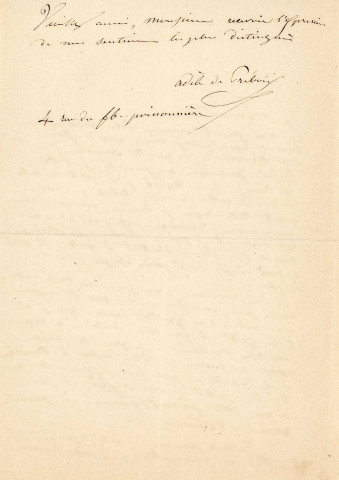 Veuillez aussi, Monsieur recevoir l'expression
de mes sentiments les plus distingués
Adèle de
4 rue du fb. poissonnière